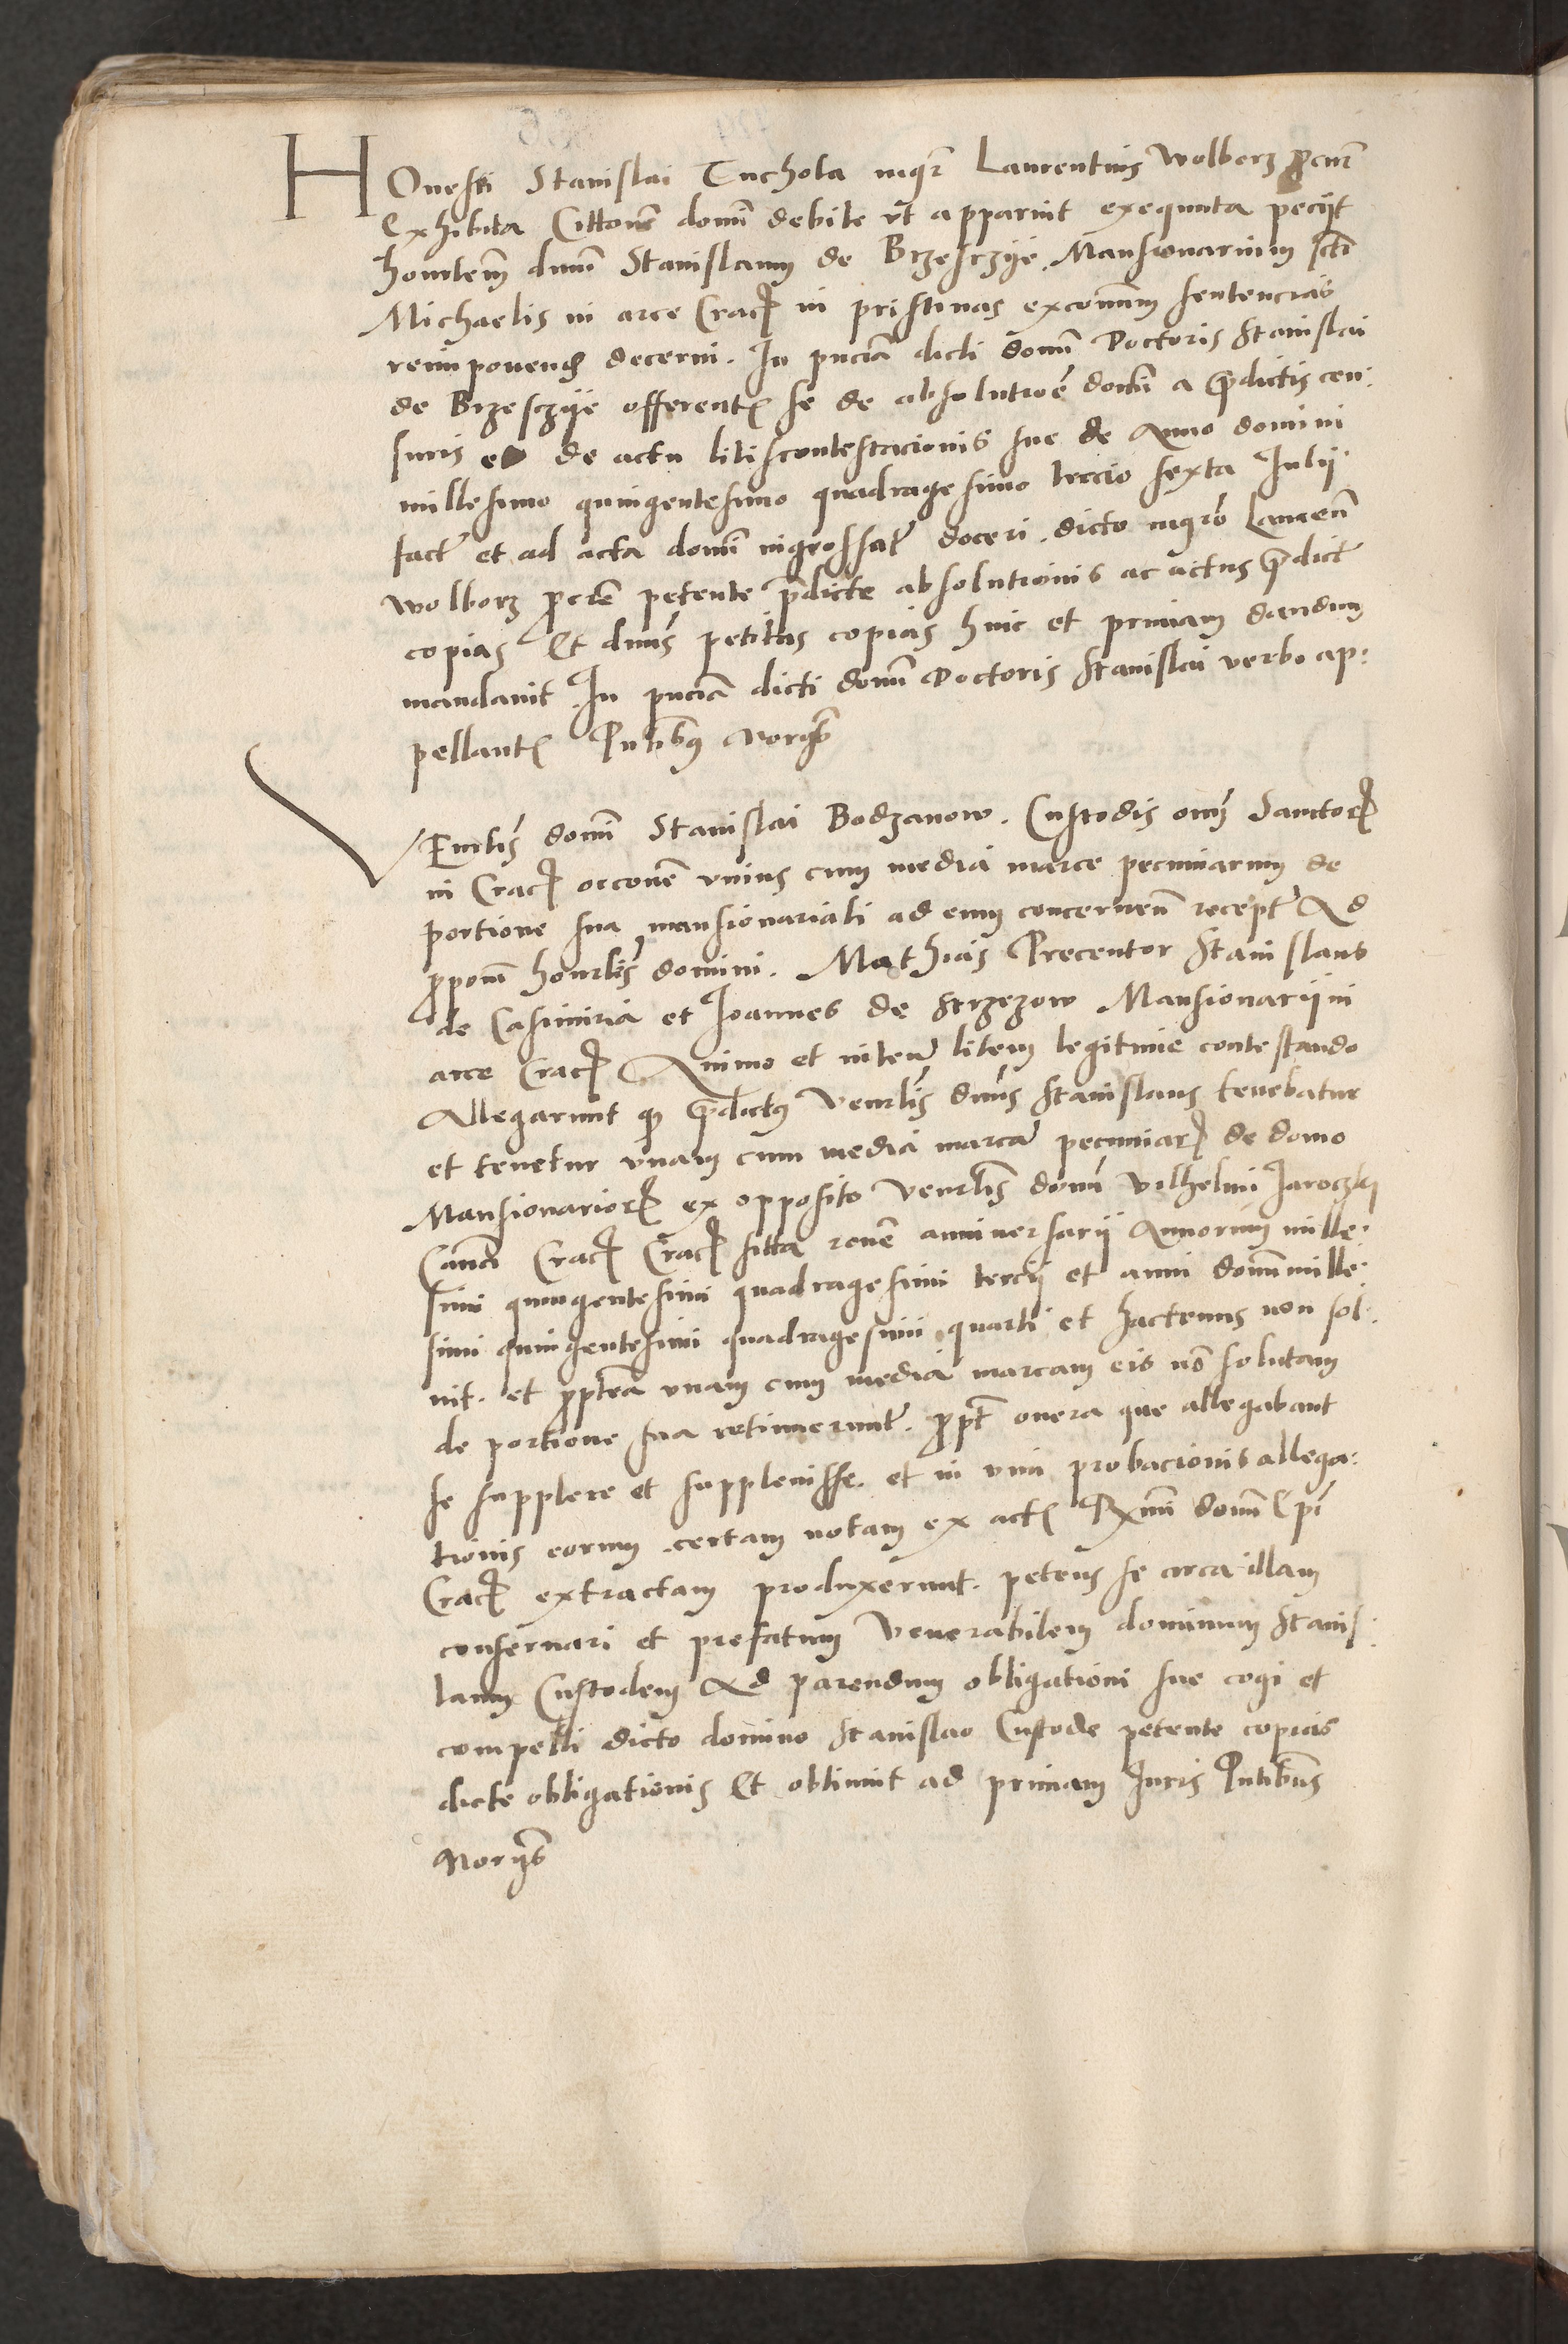 HOnesti Stanislai Tuchola mgr̄ Laurentius Wolborz procur̄
Exhibita Cittone domī debite vt apparuit exequuta pecijt
honrlem̄ dnum̄ Stanislaum de Brzesczÿe Mansionarium scti
Michaelis in arce Crac in pristinas excomm̄ sentencias
reimponend decerni. In pn̄cia dicti domī Doctoris Stanislai
de Brzesczÿe offerent se de absolutioē domī a prdictis cen:
suris et de actu litiscontestacionis sue de Anno domini
millesimo quingentesimo quadragesimo tercio sexta Iulij
fact et ad acta domī ingrossat doceri. dicto mgrō Lauren̄
Wolborz procrē petente prdicte absolutionis ac actus prdict
copias Et dnus petitas copias huic et primam dandum
mandauit. In pn̄cia dicti domī Doctoris Stanislai verbo ap:
pellant Pntibus

VEnrlis domī Stanislai Bodzanow. Custodis om̄ Sanctor
in Crac occone vnius cum media marce pecuniarum de
portione sua mansionariali ad eum concernen̄ recept Ad
propon̄ honrles domini. Mathias Precentor Stanislaus
de Casimiria et Ioannes de Strzezow Mansionarij in
arce Crac Animo et inten litem legitime contestando
Allegarunt q prdictus Venrlis dnus Stanislaus tenebatur
et tenetur vnam cum media marca pecuniar de domo
Mansionarior ex opposito Venrlis domī Vilhelmi Iaroczky
Canci Crac Crac sitta rone anniuersarij Annorum mille:
simi quingentesimi quadragesimi tercij et anni domī mille:
simi quingentesimi quadragesimi quarti et hactenus non sol:
uit. et proptea vnam cum media marcam eis nō solutam
de portione sua retinuerunt. propt onera que allegabant
se supplere et suppleuisse. et in vim probacionis allega:
tionis eorum certam notam ex act Rmi domī Epi
Crac extractam produxerunt. petens se circa illam
conseruari et prefatum Venerabilem dominum Stanis:
laum Custodem Ad parendum obligationi sue cogi et
compelli dicto domino Stanislao Custode petente copias
dicte obligationis Et obtinuit ad primam Iuris Pntibus